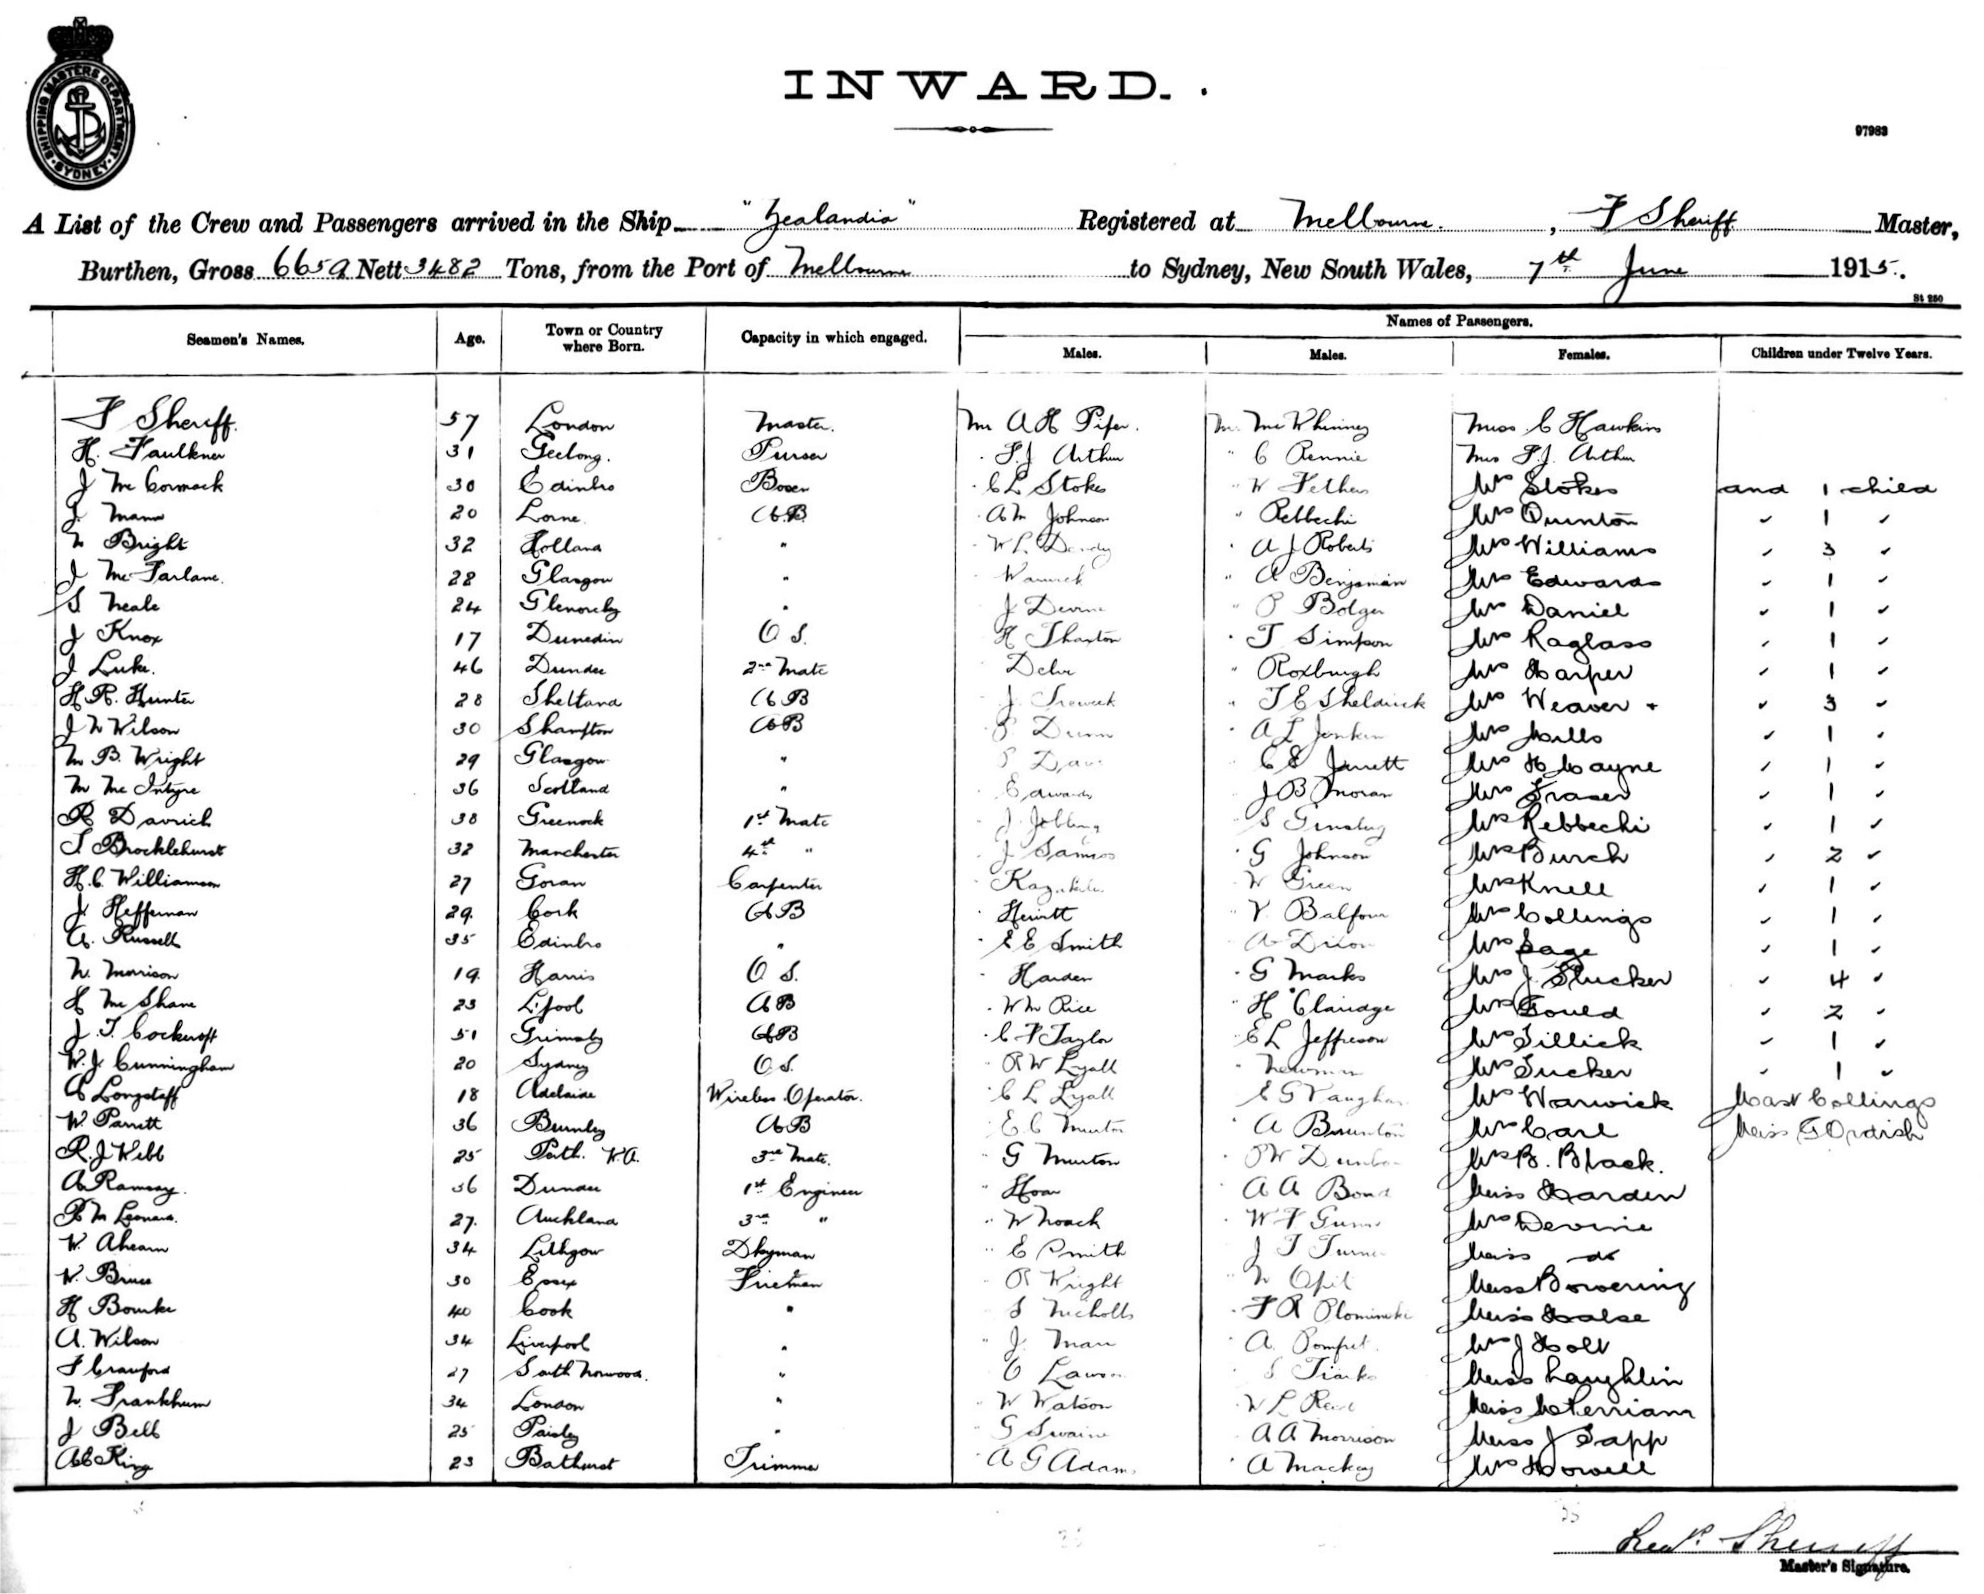 SHIPPING MASTERS DEPARTMENT. SYDNEY
INWARD.
97983
A List of the Crew and Passengers arrived in the Ship "Zealandia" Registered at Melbourne. , F Sheriff Master,
Burthen, Gross 6659 Nett 3482 Tons, from the Port of Melbourne to Sydney, New South Wales, 7th June 1915.
St 250
Seamen's Names. Age. Town or Country where Born. Capacity in which engaged. Names of Passengers.
Males. Males. Females. Children under Twelve Years.
F Sheriff. 57 London Master. Mr A H Piper. Mr McWhinney Miss C Hawkins
H. Faulkner 31 Geelong. Purser " F.J Arthur " C Rennie Mrs F.J. Arthur
J McCormack 30 Edinbro Bosen " C L Stokes " W Fethers Mrs Stokes and 1 child
J. Mann 20 Lorne. A.B. " A M Johnson " Rebbechi Mrs Quinton " 1 "
Bright 32 Holland " " W L Dendy " A J Roberts Mrs Williams " 3 "
J McFarlane. 28 Glasgow " Warwick " A Benjamin Mrs Edwards " 1 "
S Neale 24 Glenorchy " J Devine " P Bolger Mrs Daniel " 1 "
J Knox 17 Dunedin O S. H Thaxton " T Simpson Mrs Raglass " 1 "
J Luke. 46 Dundee 2nd Mate " Roxburgh Mrs Harper " 1 "
H.R. Hunter 28 Shetland A B J. Treweek " T E Sheldrick Mrs Weaver + " 3 "
J N Wilson 30 Shampton AB P. Dunn " A L Jenkin Mrs Mills " 1 "
M B. Wright 29 Glasgow " " C E Jarrett Mrs H Cayne " 1 "
M McIntyre 36 Scotland " Edwards J B Moran Mrs Fraser " 1 "
R Davrich 38 Greenock 1st Mate J Jobling " S Ginsburg Mrs Rebbechi " 1 "
Brocklehurst 32 Manchester 4th " J " G Johnson Mrs Burch " 2 "
H.C. Williamson 27 Govan Carpenter " W Green Mrs Knell " 1 "
J. Heffernan 29. Cork AB " Hewitt " V Balfour Mrs Collings " 1 "
A. Russell 35 Edinbro " " E E Smith " A Dixon Mrs Sage " 1 "
N. Morrison 19. Harris O S. " Harden " G Marks Mrs J. Stucker " 4 "
H McShane 23 L'pool AB " W M Rice " H Claridge Mrs Gould " 2 "
J. T. Cockcroft 51 Grimsby AB " C F Taylor " E L Jefferson Mrs Tillick " 1 "
W. J. Cunningham 20 Sydney O. S. " R W Lyall " Newman Mrs Tucker " 1 "
C Longstaff 18 Adelaide Wireless Operator. " C L Lyall " E G Vaughan Mrs Warwick Mast Collings
W. Parrett 36 Burnley AB " E C Murton " A Brunton Mrs Carl Miss G Ordish
R. J Webb 25 Perth. W.A. 3rd Mate. " G Murton Mrs B. Black.
A Ramsay. 36 Dundee 1st Engineer " Hoar A A Bond Miss Harden
R M Leonard. 27. Auckland 3rd " " W Noack " W F Gunn Mrs Devine
W. Ahearn 34 Lithgow Dkyman " E Smith J T Turner Miss do
W. Bruce 30 Essex Fireman " R Wright Miss Bowering
H Bourke 40 Cook " " S Nicholls " F R Plominski Miss Halse
A. Wilson 34 Liverpool " " J. Marr " A. Pomfret. Mrs J Holt
F Crawford 27 South Norwood. " C Lawson " S Tiarks Miss Laughlin
Frankhum 34 London " " W Watson " W L Reid Miss McFerriam
J Bell 25 Paisley " G Swaine A A Morrison Miss J Tapp
A E King 23 Bathurst Trimmer " A G Adams " A Mackay Mrs Howell
Sheriff
Master's Signature.